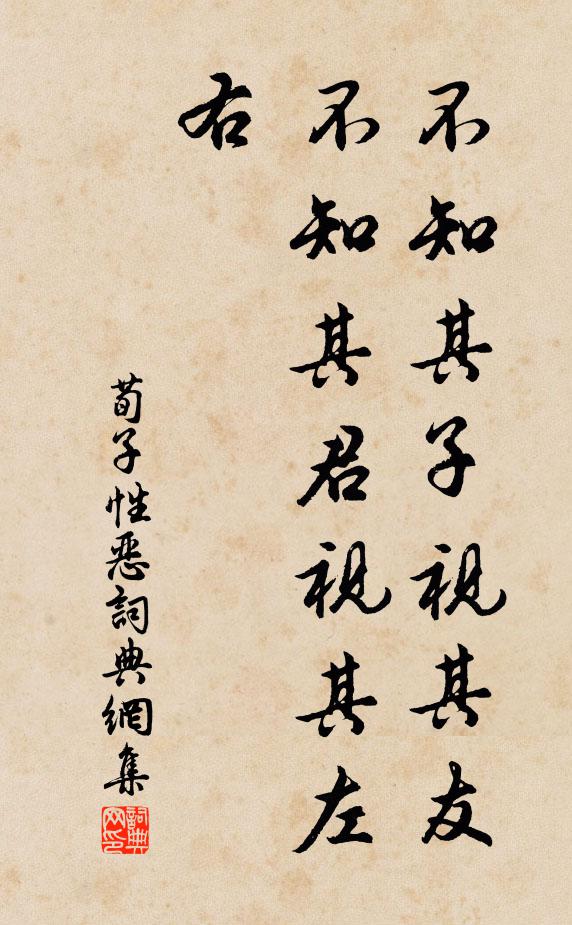 不知其子視其友
不知其君視其左
右
荀子性惡詞典網集
詞典网印